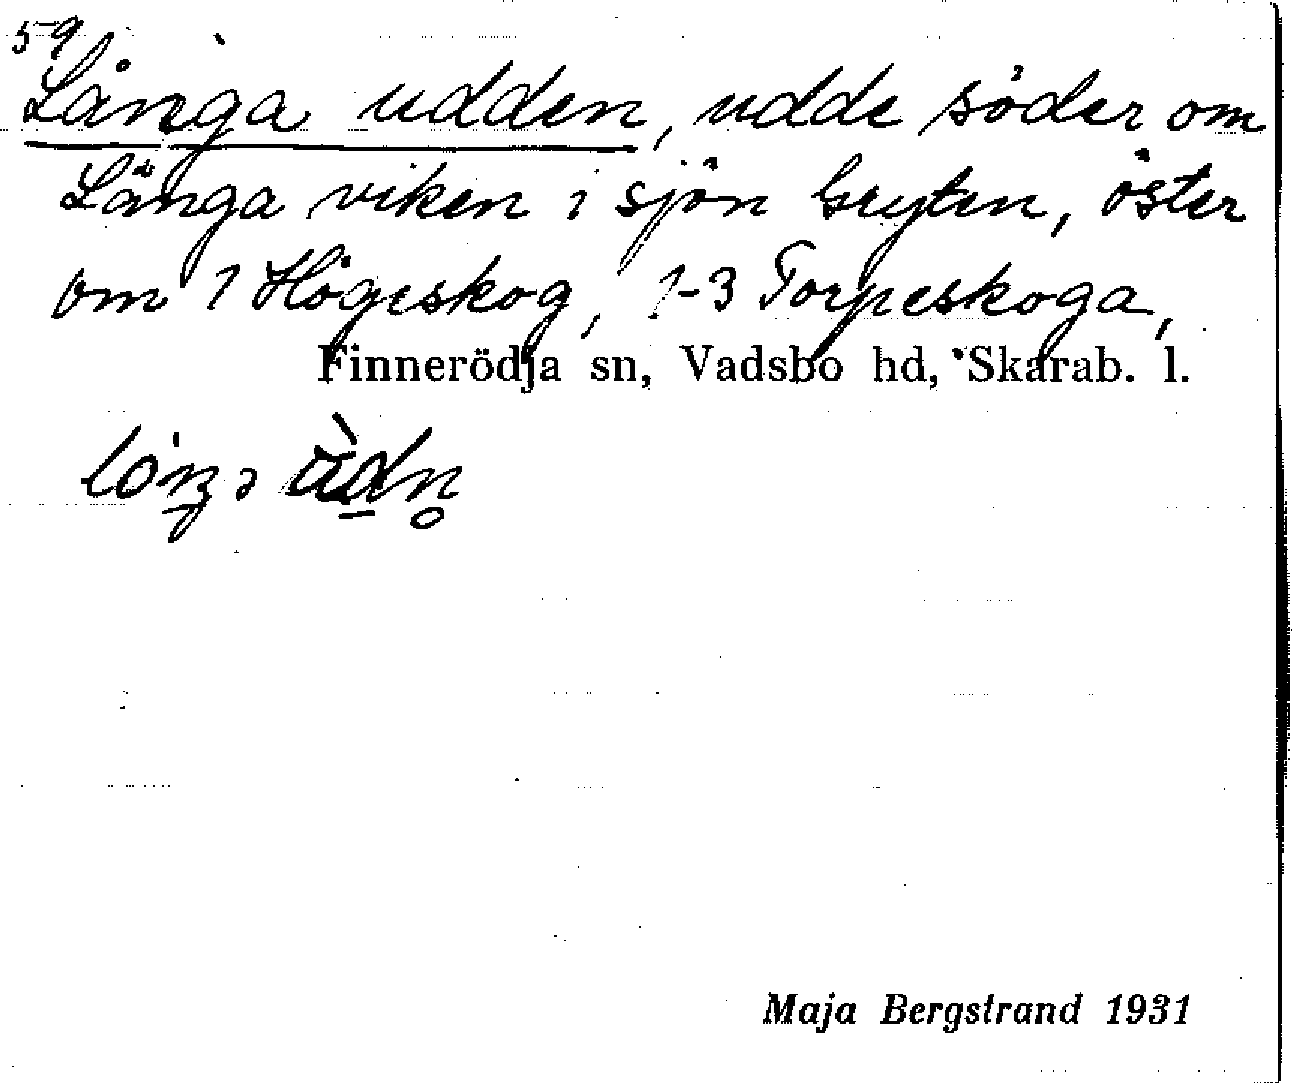 59
Långa udden, udde söder om
Långa viken i sjön Gryten, öster
om 1 Högeskog, 1-3 Torpeskoga,
Finnerödja sn, Vadsbo hd, Skarab. l.
Maja Bergstrand 1931